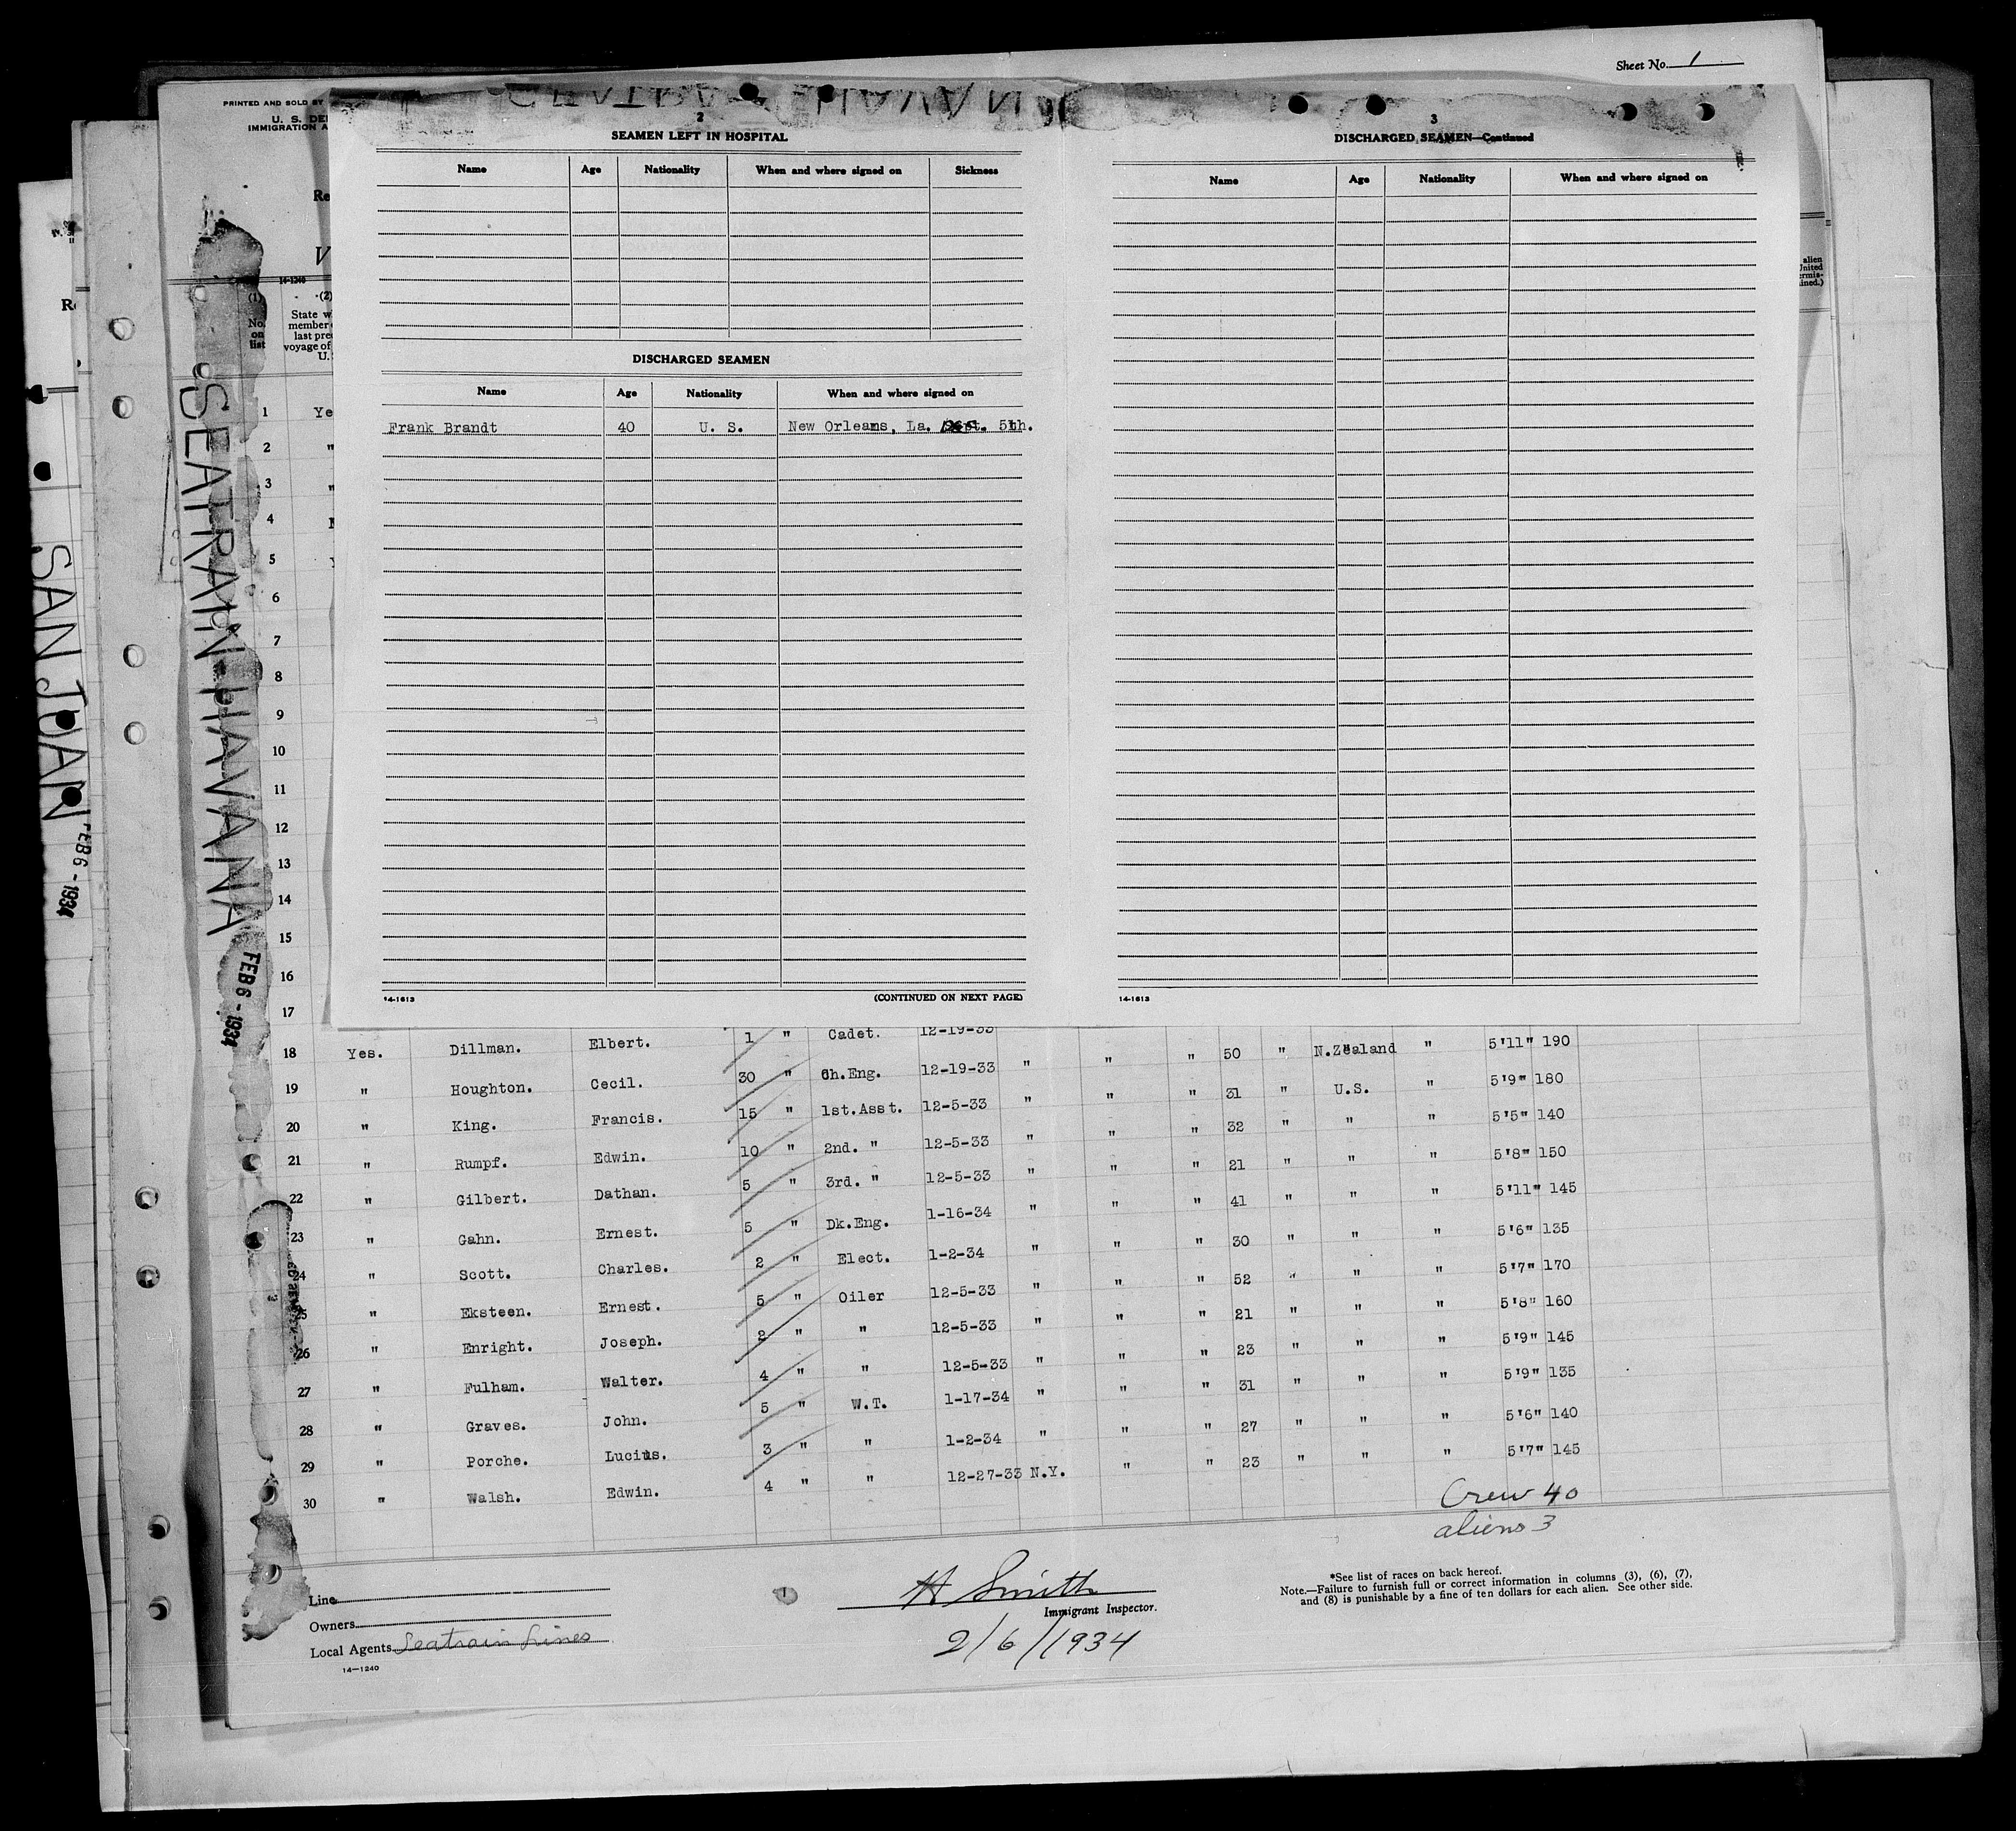 Sheet No. 1
PRINTED AND SOLD BY
U. S. DE
IMMIGRATION A
SEATRAIN HAVANA
2
SEAMEN LEFT IN HOSPITAL
Name Age Nationality When and where signed on Sickness
DISCHARGED SEAMEN
Name Age Nationality When and where signed on
Frank Brandt 40 U. S. New Orleans, La. Sept. 5th.
14-1613 (CONTINUED ON NEXT PAGE)
3
DISCHARGED SEAMEN—Continued
Name Age Nationality When and where signed on
14-1613
alien
United
ermis-
ined.)
Re
V
14-1240
(1) (2)
No. on list
State w
member
last pre
voyage of
U.
1 Ye
2 "
3 "
4
5
6
7
8
9
10
11
12
13
14
15
16
17
18 Yes. Dillman. Elbert. 1 " Cadet. 12-19-33 " " 50 " N.Zealand " 5'11" 190
19 " Houghton. Cecil. 30 " Ch.Eng. 12-19-33 " " " 31 " U.S. " 5'9" 180
20 " King. Francis. 15 " 1st.Asst. 12-5-33 " " " 32 " " " 5'5" 140
21 " Rumpf. Edwin. 10 " 2nd. " 12-5-33 " " " 21 " " " 5'8" 150
22 " Gilbert. Dathan. 5 " 3rd. " 12-5-33 " " " 41 " " " 5'11" 145
23 " Gahn. Ernest. 5 " Dk.Eng. 1-16-34 " " " 30 " " " 5'6" 135
24 " Scott. Charles. 2 " Elect. 1-2-34 " " " 52 " " " 5'7" 170
25 " Eksteen. Ernest. 5 " Oiler 12-5-33 " " " 21 " " " 5'8" 160
26 " Enright. Joseph. 2 " " 12-5-33 " " " 23 " " " 5'9" 145
27 " Fulham. Walter. 4 " " 12-5-33 " " " 31 " " " 5'9" 135
28 " Graves. John. 5 " W.T. 1-17-34 " " " 27 " " " 5'6" 140
29 " Porche. Lucius. 3 " " 1-2-34 " " " 23 " " " 5'7" 145
30 " Walsh. Edwin. 4 " " 12-27-33 N.Y.
Crew 40
aliens 3
Line
Owners
Local Agents Seatrain Lines
14—1240
H Smith
Immigrant Inspector.
2/6/1934
*See list of races on back hereof.
Note.—Failure to furnish full or correct information in columns (3), (6), (7),
and (8) is punishable by a fine of ten dollars for each alien. See other side.
SEATRAIN-HAVANA FEB 6 - 1934
SAN JUAN FEB 6 - 1934